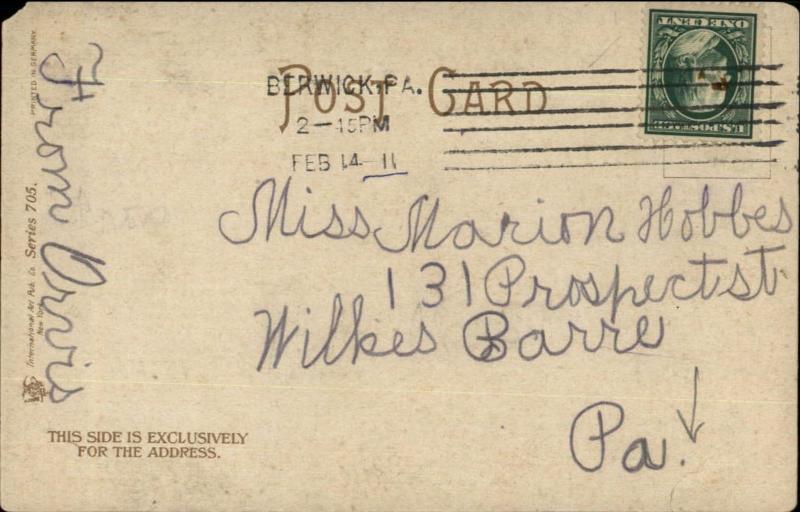 POST CARD
BERWICK, PA.
2-45PM
FEB 14-11
ONE CENT
U.S. POSTAGE
Miss Marion Hobbes
131 Prospect st.
Wilkes Barre
Pa.
From
PRINTED IN GERMANY.
International Art Pub. Co. Series 705.
New York
THIS SIDE IS EXCLUSIVELY
FOR THE ADDRESS.